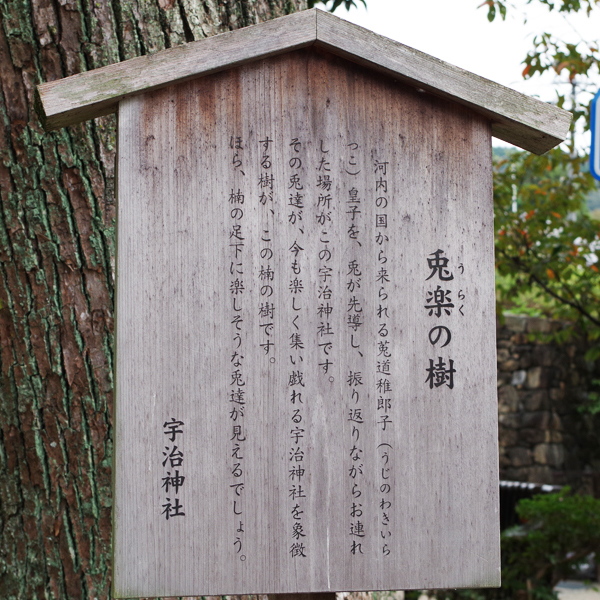 兎楽の樹
うらく
河内の国から来られる菟道稚郎子（うじのわきいら
っこ）皇子を、兎が先導し、振り返りながらお連れ
した場所がこの宇治神社です。
その兎達が、今も楽しく集い戯れる宇治神社を象徴
する樹が、この楠の樹です。
ほら、楠の足下に楽しそうな兎達が見えるでしょう。
宇治神社